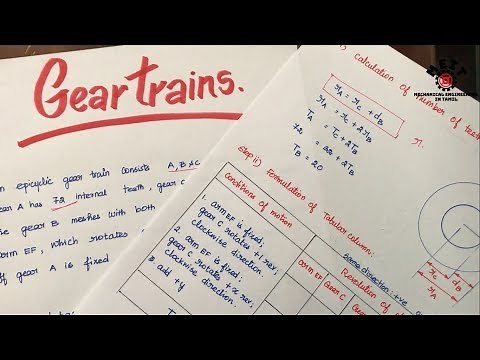 Gear trains.
n epicyclic gear train consists A, B, &C
ear A has 72 internal teeth, gear C
se gear B meshes with both
arm EF, which rotates
If gear A is fixed
MECHANICAL ENGINEERING
IN TAMIL
i) Calculation of number of teeth
rA = rC + dB
TA = TC + 2TB
72 =
TB = 20
Step ii) Formulation of Tabular column:
Conditions of motion
1. arm EF is fixed;
gear C rotates +1 rev;
clockwise direction
2. arm EF is fixed;
gear C rotates +x rev;
clockwise direction.
3. add +y
arm EF
Gear C
Revolution of
same direction: +ve
rC
dB
rA